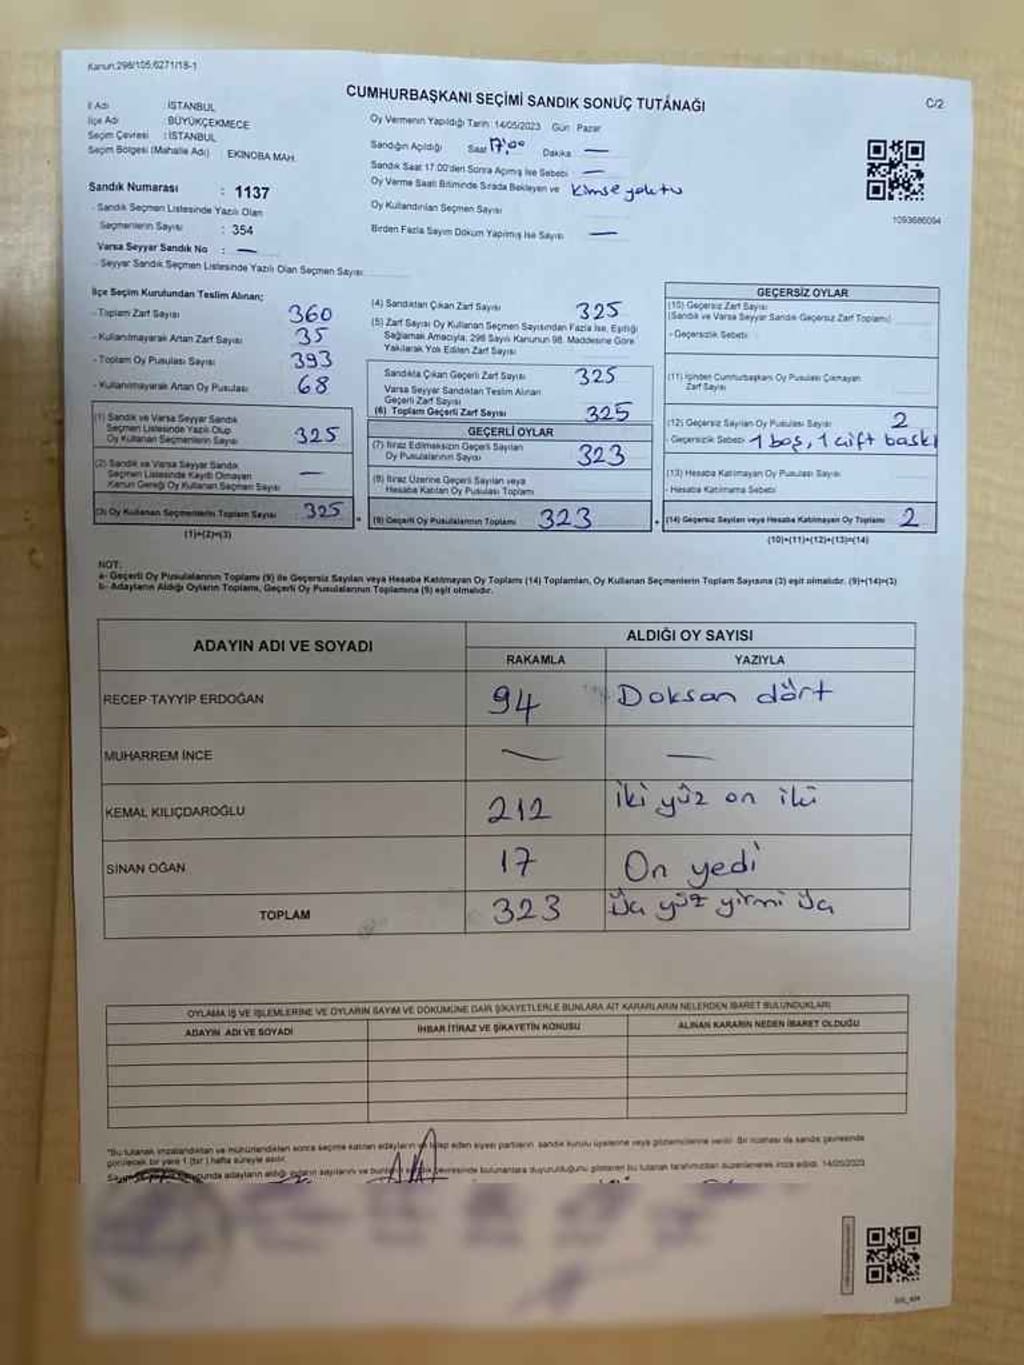 Kanun:298/105;6271/18-1
CUMHURBAŞKANI SEÇİMİ SANDIK SONUÇ TUTANAĞI
C/2
İl Adı : İSTANBUL
İlçe Adı : BÜYÜKÇEKMECE
Seçim Çevresi : İSTANBUL
Seçim Bölgesi (Mahalle Adı) EKİNOBA MAH.
Sandık Numarası : 1137
- Sandık Seçmen Listesinde Yazılı Olan
Seçmenlerin Sayısı : 354
Varsa Seyyar Sandık No : —
- Seyyar Sandık Seçmen Listesinde Yazılı Olan Seçmen Sayısı
Oy Vermenin Yapıldığı Tarih: 14/05/2023 Gün: Pazar
Sandığın Açıldığı Saat 17:00 Dakika —
Sandık Saat 17.00'den Sonra Açmış İse Sebebi : —
Oy Verme Saati Bitiminde Sırada Bekleyen ve kimse yoktu
Oy Kullandırılan Seçmen Sayısı
Birden Fazla Sayım Döküm Yapılmış İse Sayısı —
1093686094
İlçe Seçim Kurulundan Teslim Alınan;
- Toplam Zarf Sayısı 360
- Kullanılmayarak Artan Zarf Sayısı 35
- Toplam Oy Pusulası Sayısı 393
- Kullanılmayarak Artan Oy Pusulası 68
(1) Sandık ve Varsa Seyyar Sandık
Seçmen Listesinde Yazılı Olup
Oy Kullanan Seçmenlerin Sayısı 325
(2) Sandık ve Varsa Seyyar Sandık
Seçmen Listesinde Kayıtlı Olmayan
Kanun Gereği Oy Kullanan Seçmen Sayısı —
(3) Oy Kullanan Seçmenlerin Toplam Sayısı 325
(1)+(2)=(3)
(4) Sandıktan Çıkan Zarf Sayısı 325
(5) Zarf Sayısı Oy Kullanan Seçmen Sayısından Fazla İse, Eşitliği
Sağlamak Amacıyla; 298 Sayılı Kanunun 98. Maddesine Göre
Yakılarak Yok Edilen Zarf Sayısı
Sandıkta Çıkan Geçerli Zarf Sayısı 325
Varsa Seyyar Sandıktan Teslim Alınan
Geçerli Zarf Sayısı
(6) Toplam Geçerli Zarf Sayısı 325
GEÇERLİ OYLAR
(7) İtiraz Edilmeksizin Geçerli Sayılan
Oy Pusulalarının Sayısı 323
(8) İtiraz Üzerine Geçerli Sayılan veya
Hesaba Katılan Oy Pusulası Toplamı
(9) Geçerli Oy Pusulalarının Toplamı 323
GEÇERSİZ OYLAR
(10) Geçersiz Zarf Sayısı
(Sandık ve Varsa Seyyar Sandık Geçersiz Zarf Toplamı)
- Geçersizlik Sebebi:
(11) İçinden Cumhurbaşkanı Oy Pusulası Çıkmayan
Zarf Sayısı
(12) Geçersiz Sayılan Oy Pusulası Sayısı 2
- Geçersizlik Sebebi 1 boş, 1 çift baskı
(13) Hesaba Katılmayan Oy Pusulası Sayısı
- Hesaba Katılmama Sebebi
(14) Geçersiz Sayılan veya Hesaba Katılmayan Oy Toplamı 2
(10)+(11)+(12)+(13)=(14)
NOT:
a- Geçerli Oy Pusulalarının Toplamı (9) ile Geçersiz Sayılan veya Hesaba Katılmayan Oy Toplamı (14) Toplamları, Oy Kullanan Seçmenlerin Toplam Sayısına (3) eşit olmalıdır. (9)+(14)=(3)
b- Adayların Aldığı Oyların Toplamı, Geçerli Oy Pusulalarının Toplamına (9) eşit olmalıdır.
ADAYIN ADI VE SOYADI ALDIĞI OY SAYISI
RAKAMLA YAZIYLA
RECEP TAYYİP ERDOĞAN 94 Doksan dört
MUHARREM İNCE — —
KEMAL KILIÇDAROĞLU 212 iki yüz on iki
SİNAN OĞAN 17 On yedi
TOPLAM 323 Üç yüz yirmi üç
OYLAMA İŞ VE İŞLEMLERİNE VE OYLARIN SAYIM VE DÖKÜMÜNE DAİR ŞİKAYETLERLE BUNLARA AİT KARARLARIN NELERDEN İBARET BULUNDUKLARI
ADAYIN ADI VE SOYADI İHBAR İTİRAZ VE ŞİKAYETİN KONUSU ALINAN KARARIN NEDEN İBARET OLDUĞU
"Bu tutanak imzalandıktan ve mühürlendikten sonra seçime katılan adayların ve talep eden siyasi partilerin sandık kurulu üyelerine veya gözlemcilerine verilir. Bir nüshası da sandık çevresinde
görülecek bir yere 1 (bir) hafta süreyle asılır.
adayların aldığı oyların sayılarını ve çevresinde bulunanlara duyurulduğunu gösteren bu tutanak tarafımızdan düzenlenerek imza edildi. 14/05/2023